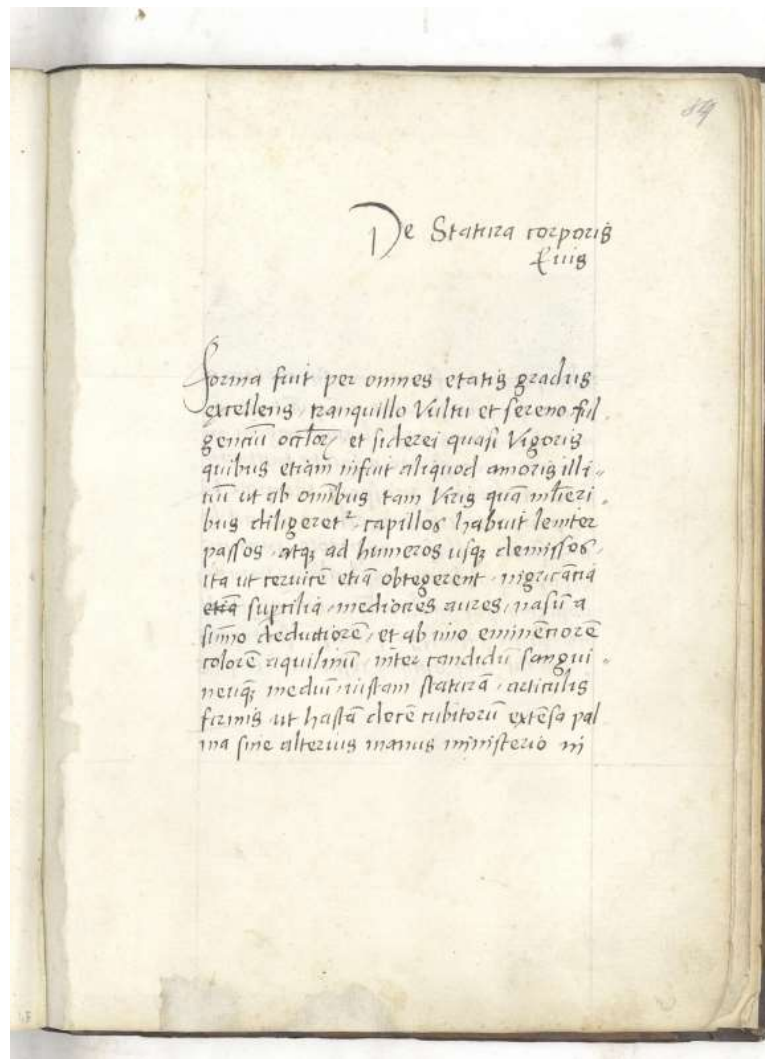 84
De Statura corporis
Eius
Forma fuit per omnes etatis gradus
excellens, tranquillo Vultu et sereno ful-
genciũ oculor et siderei quasi Vigoris
quibus etiam infuit aliquod amoris illi-
ciũ ut ab oĩnibus tam Viris quã mlieri-
bus diligeret², capillos habuit leniter
passos, atq; ad humeros usq; demissos,
ita ut cervicẽ etiã obtegerent, nigricãtia
etiã supcilia, mediocres aures, nasũ a
sũmo deductiorẽ, et ab imo eminẽtiorẽ
colorẽ aquilinũ inter candidũ sangui-
neuq; mediũ iustam staturã, articulis
firmis ut hastã decẽ cubitorũ extẽsa pal
ma sine alterius manus ministerio in